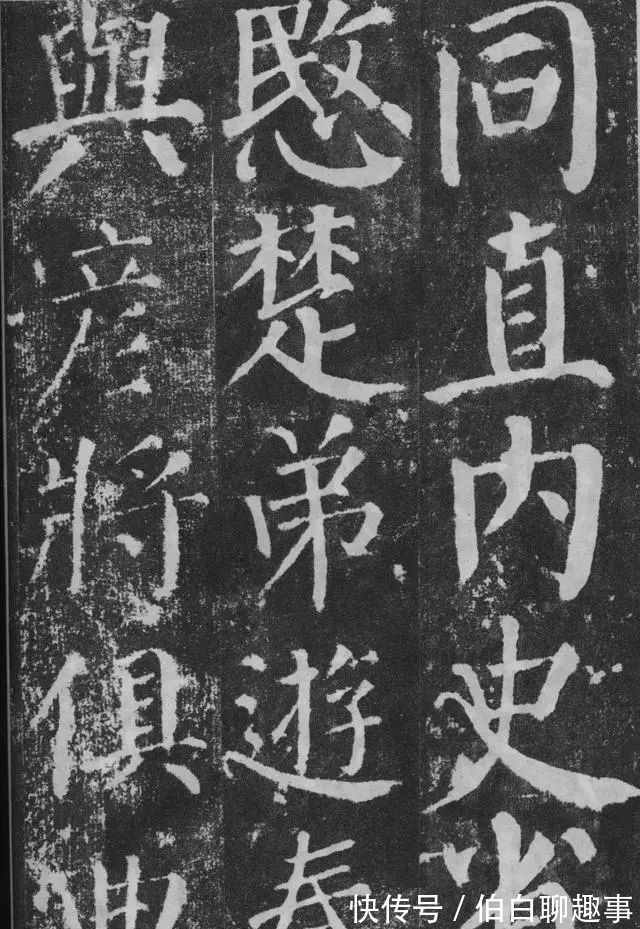 同直内史省
愍楚弟遊秦
與彦將俱典
快传号 / 伯白聊趣事